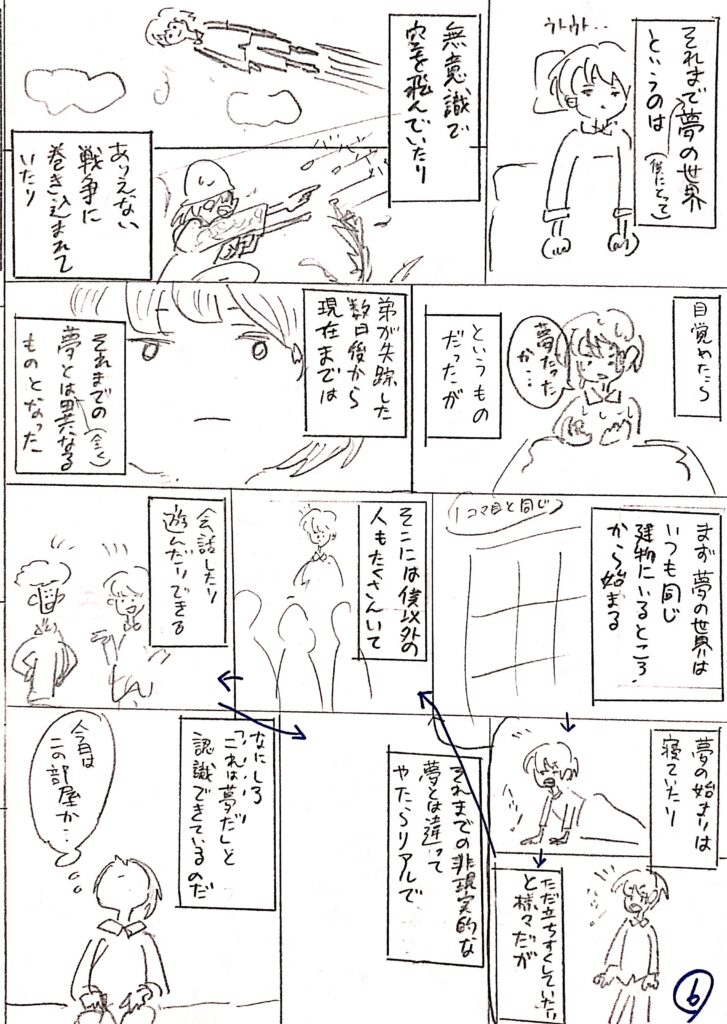 それまで夢の世界
というのは
(僕にとって)
ウトウト‥
無意識で
空を飛んでいたり
ありえない
戦争に
巻き込まれて
いたり
目覚めたら
夢だった
か…
というもの
だったが
弟が失踪した
数日後から
現在までは
それまでの
夢とは異なる
(全く)
ものとなった
まず夢の世界は
いつも同じ
建物にいるところ
から始まる
1コマ目と同じ
夢の始まりは
寝ていたり
ただ立ちすくしていたり
と様々だが
そこには僕以外の
人もたくさんいて
会話したり
遊んだりできる
それまでの非現実的な
夢とは違って
やたらリアルで
なにしろ
「これは夢だ」と
認識できているのだ
今日は
この部屋か…
6